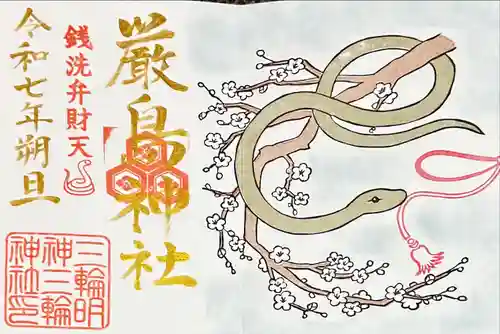 厳島神社
銭洗弁財天
令和七年朔旦
三輪明
神三輪
神社印